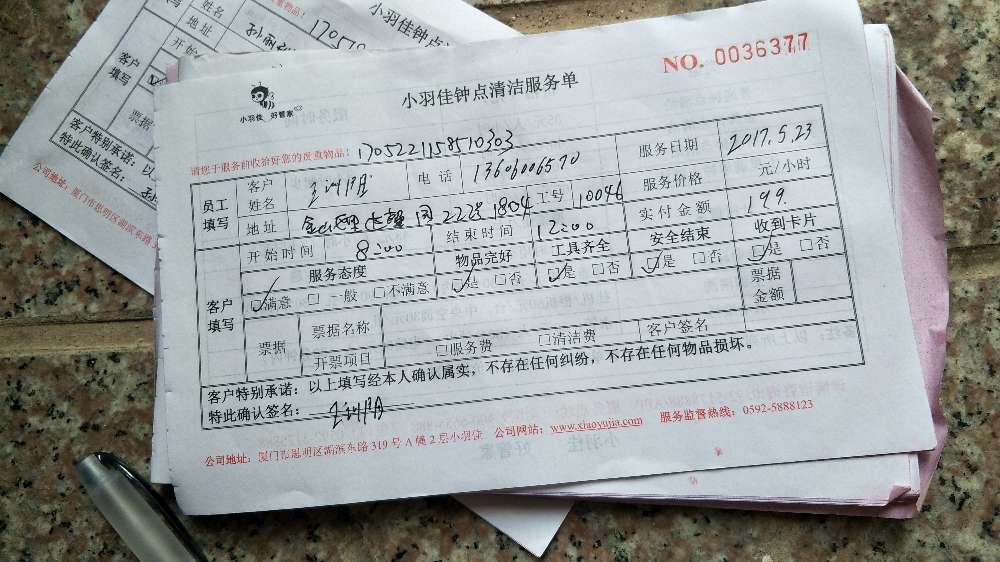 小羽佳钟点清洁服务单
NO. 0036377
小羽佳 好管家
请您于服务前收拾好您的贵重物品! 1705221158510303
员工填写 客户姓名 电话 13606006570 服务日期 2017.5.23
地址 22号1804 工号 10046 服务价格 元/小时
客户填写 开始时间 8:00 结束时间 12:00 实付金额 199.
服务态度 物品完好 工具齐全 安全结束 收到卡片
□满意 □一般 □不满意 □是 □否 □是 □否 □是 □否 □是 □否
票据 票据名称 票据金额
开票项目 □服务费 □清洁费 客户签名
客户特别承诺:以上填写经本人确认属实,不存在任何纠纷,不存在任何物品损坏。
特此确认签名:
公司地址:厦门市思明区湖滨东路 319 号 A 幢 2 层小羽佳 公司网站:www.xiaoyujia.com 服务监督热线:0592-5888123
小羽佳钟点
重物品! 17057
客户姓名
地址
开始
客户填写
票据
客户特别承诺:以
特此确认签名:
公司地址:厦门市思明区湖滨东路3